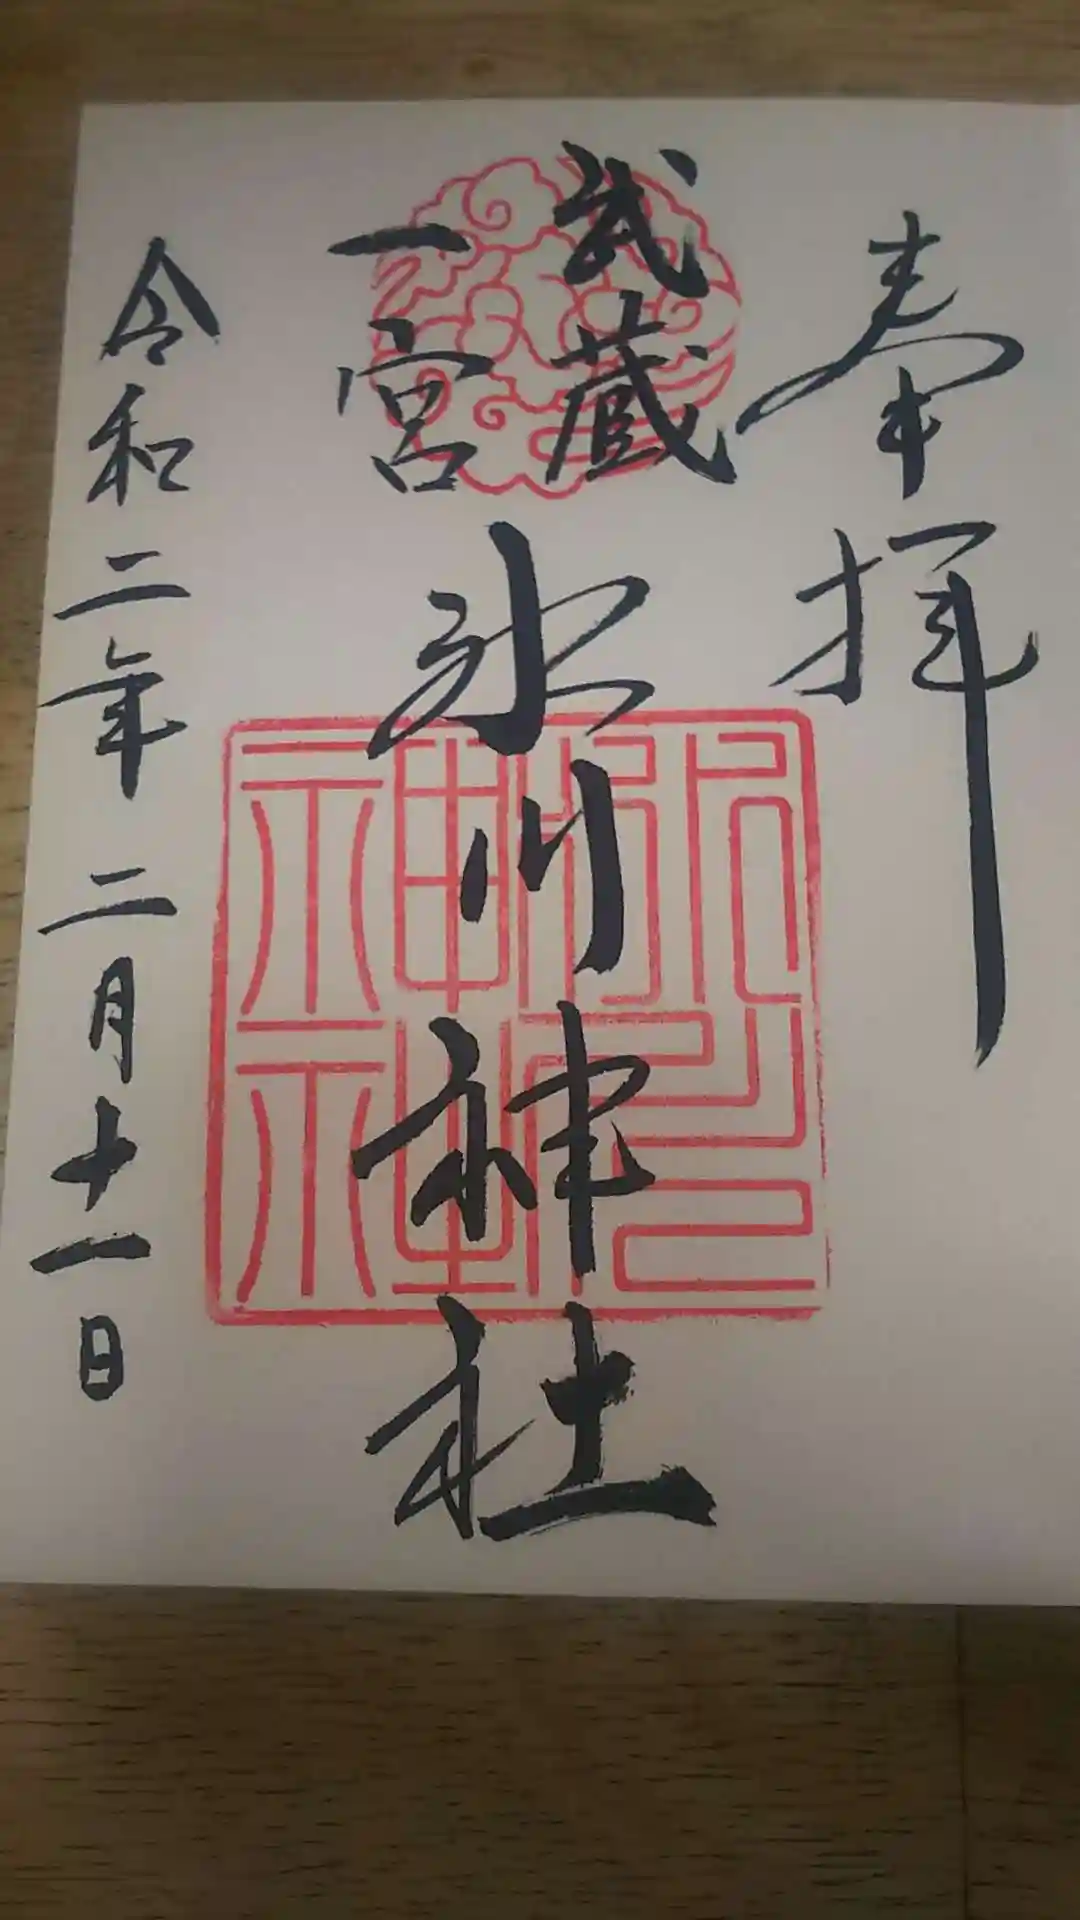 奉拝
武蔵
一宮
氷川神社
氷川神社
令和二年二月十一日